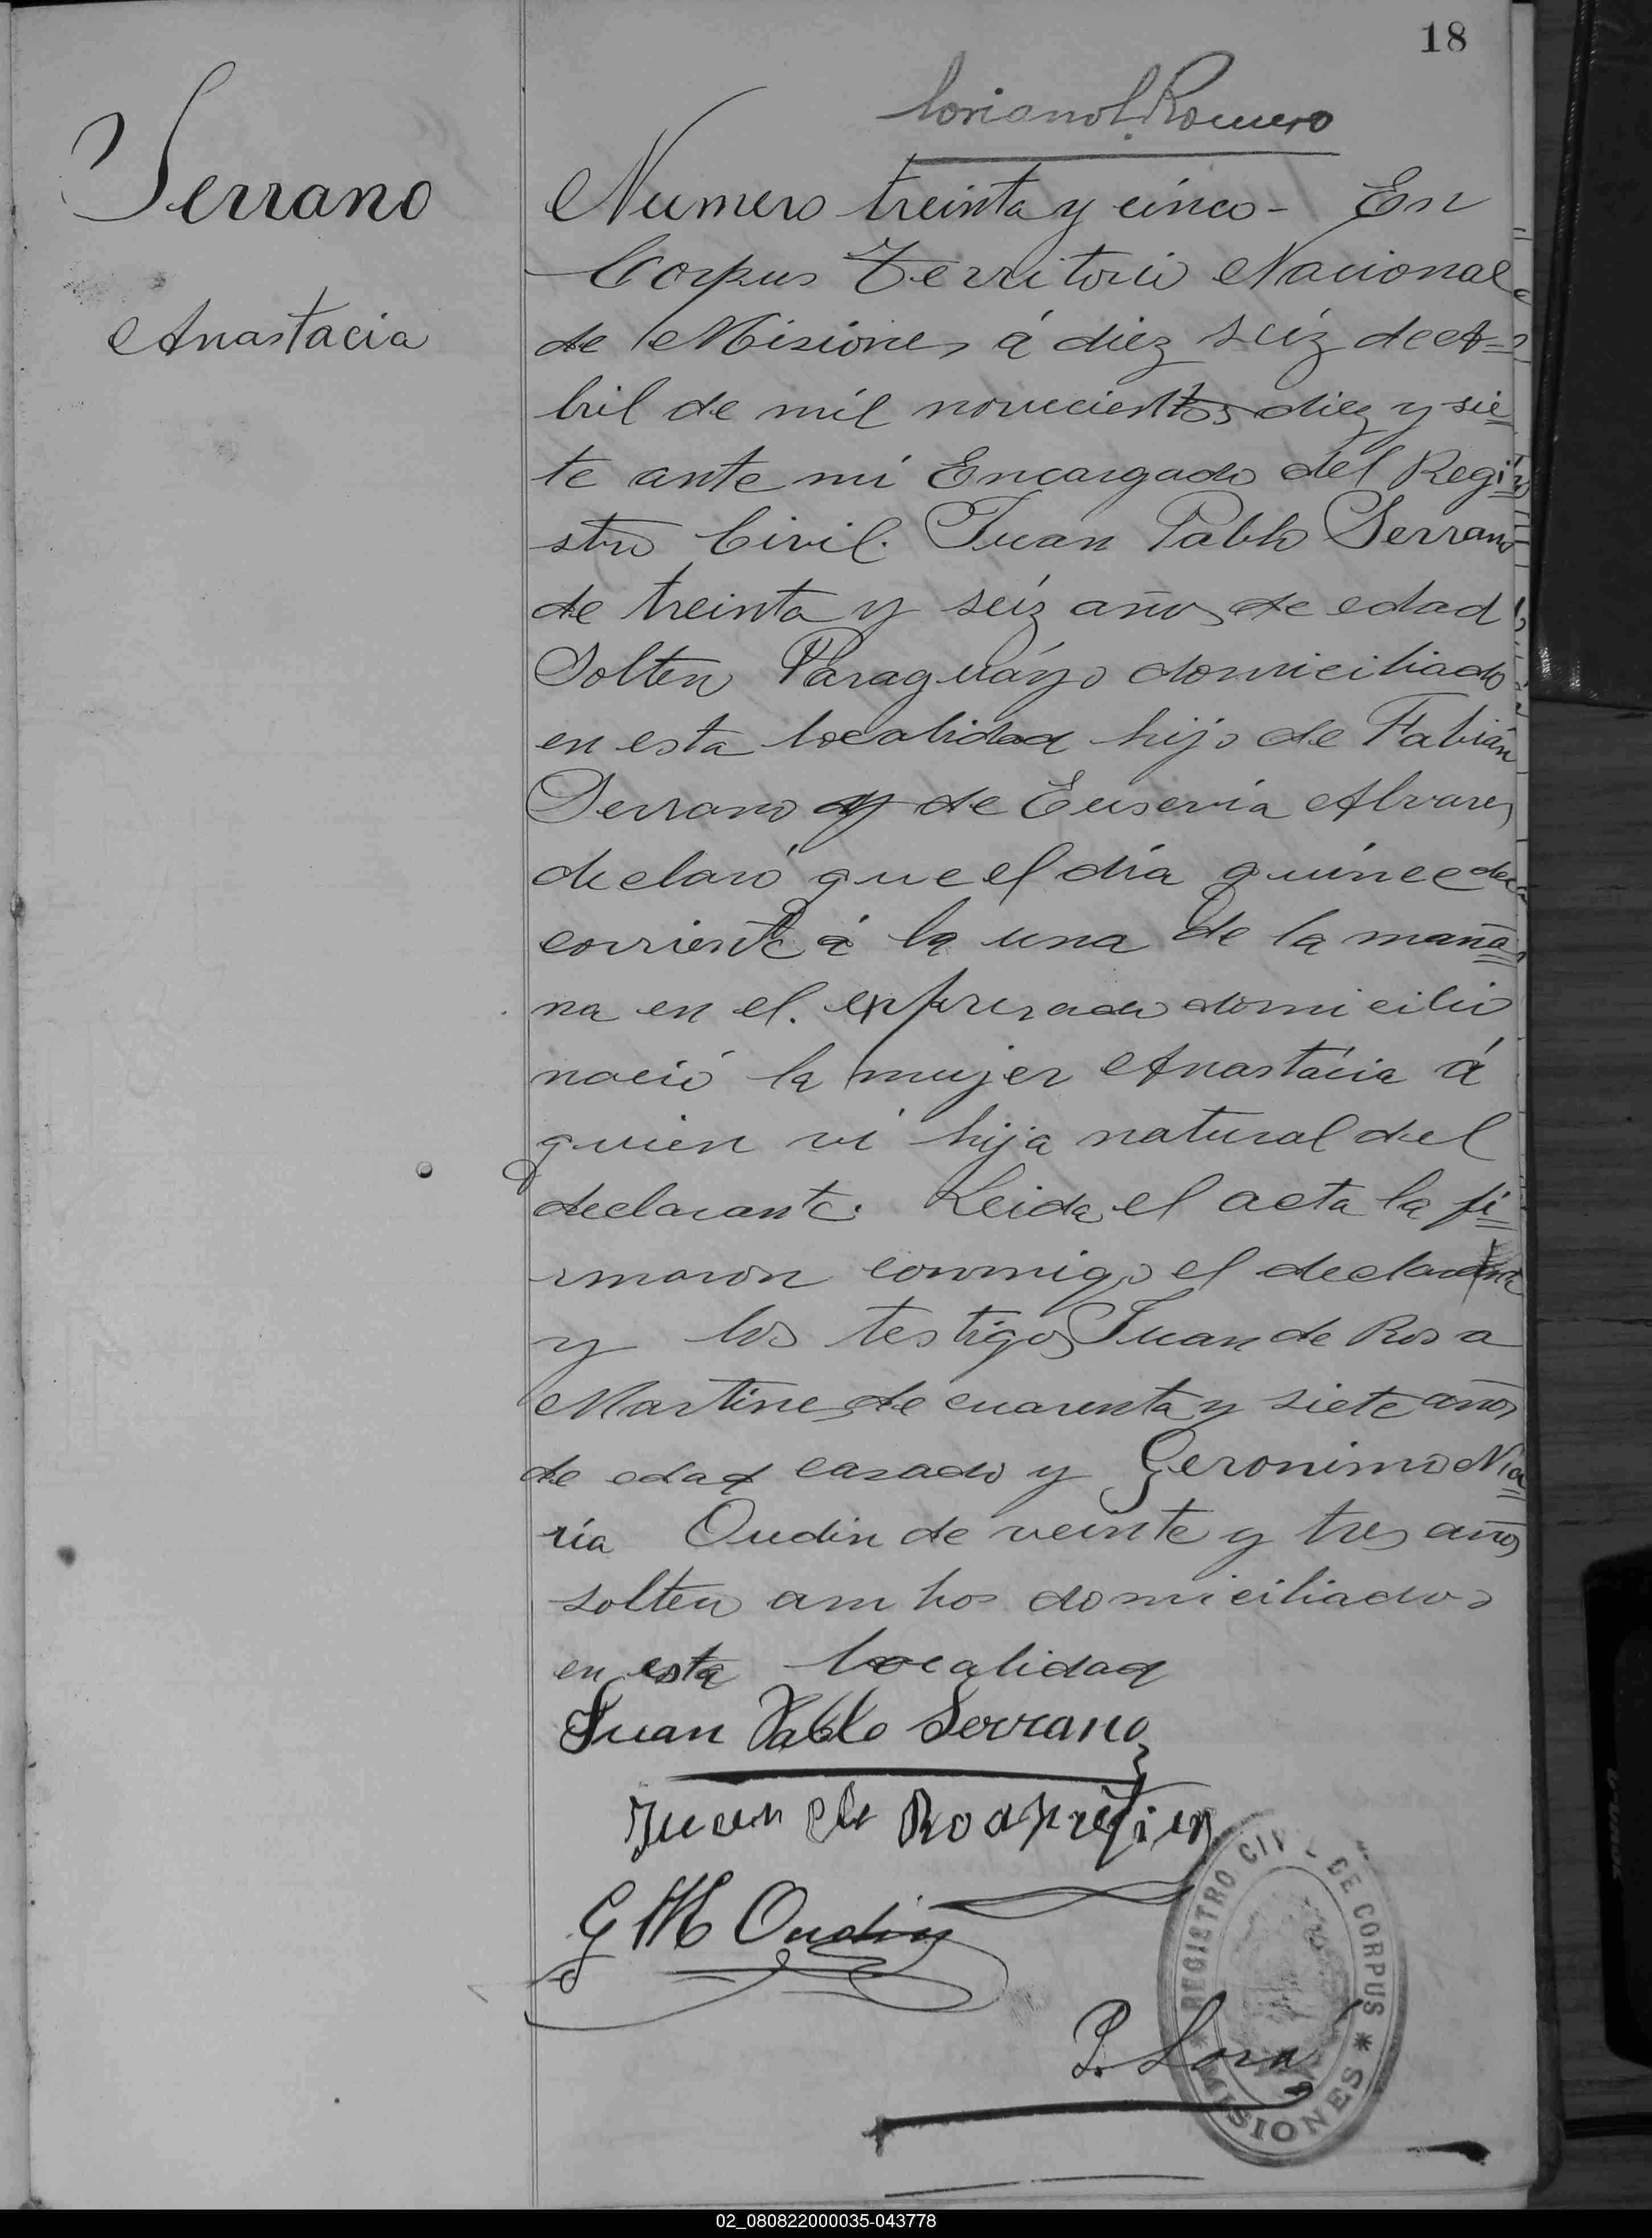 18
Serrano
Anastacia
Romero
Numero treinta y cinco - En
Corpus Territorio Nacional
de Misiones á diez seiz de A=
bril de mil novecientos diez y sie=
te ante mi Encargado del Regi=
stro Civil. Juan Pablo Serrano
de treinta y seiz años de edad
Soltero Paraguáyo domiciliado
en esta localidad hijo de Fabián
Serrano y de Euservia Alvares
declaró que el día quince del
corriente á la una de la maña=
na en el. expresado domicilio
nació la mujer Anastácia á
quien vi hija natural del
declarante. Leida el acta la fi=
rmaron conmigo el declarante
y los testigos Juan de Rosa
Martines de cuarenta y siete años
de edad casado y Geronimo Ma=
ría Oudin de veinte y tres años
soltero ambos domiciliados
en esta localidad
Juan Pablo Serrano
Juan de
G M Oudin
P. Lora
REGISTRO CIVIL DE CORPUS
* MISIONES *
02_080822000035-043778